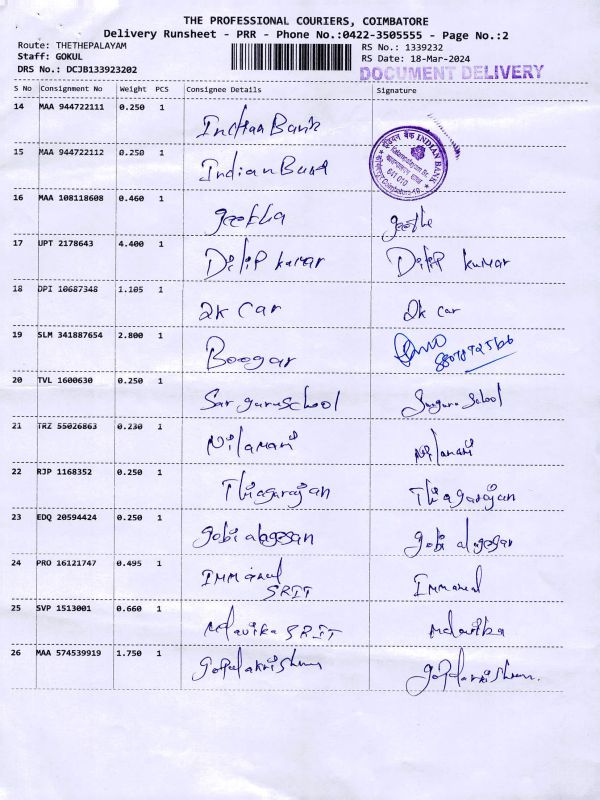 THE PROFESSIONAL COURIERS, COIMBATORE
Delivery Runsheet - PRR - Phone No.:0422-3505555 - Page No.:2
Route: THETHEPALAYAM RS No.: 1339232
Staff: GOKUL RS Date: 18-Mar-2024
DRS No.: DCJB133923202 DOCUMENT DELIVERY
S No Consignment No Weight PCS Consignee Details Signature
14 MAA 944722111 0.250 1 Indian Bank
15 MAA 944722112 0.250 1 Indian Bank
INDIAN BANK
641 010
16 MAA 108118608 0.460 1 geetha geethe
17 UPT 2178643 4.400 1 Dilip kumar Dilip kumar
18 DPI 10687348 1.105 1 2k Car 2k Car
19 SLM 341887654 2.800 1 Boogar
20 TVL 1600630 0.250 1 Sarguruschool School
21 TRZ 55026863 0.230 1 Nilamani Nilamani
22 RJP 1168352 0.250 1 Thiagarajan Thiagarajan
23 EDQ 20594424 0.250 1 gobi alagesan gobi alagesan
24 PRO 16121747 0.495 1 Immanuel Immanuel
SRIT
25 SVP 1513001 0.660 1 Malavika SRIT Malavika
26 MAA 574539919 1.750 1 Gopalakrishnan Gopalakrishnan.